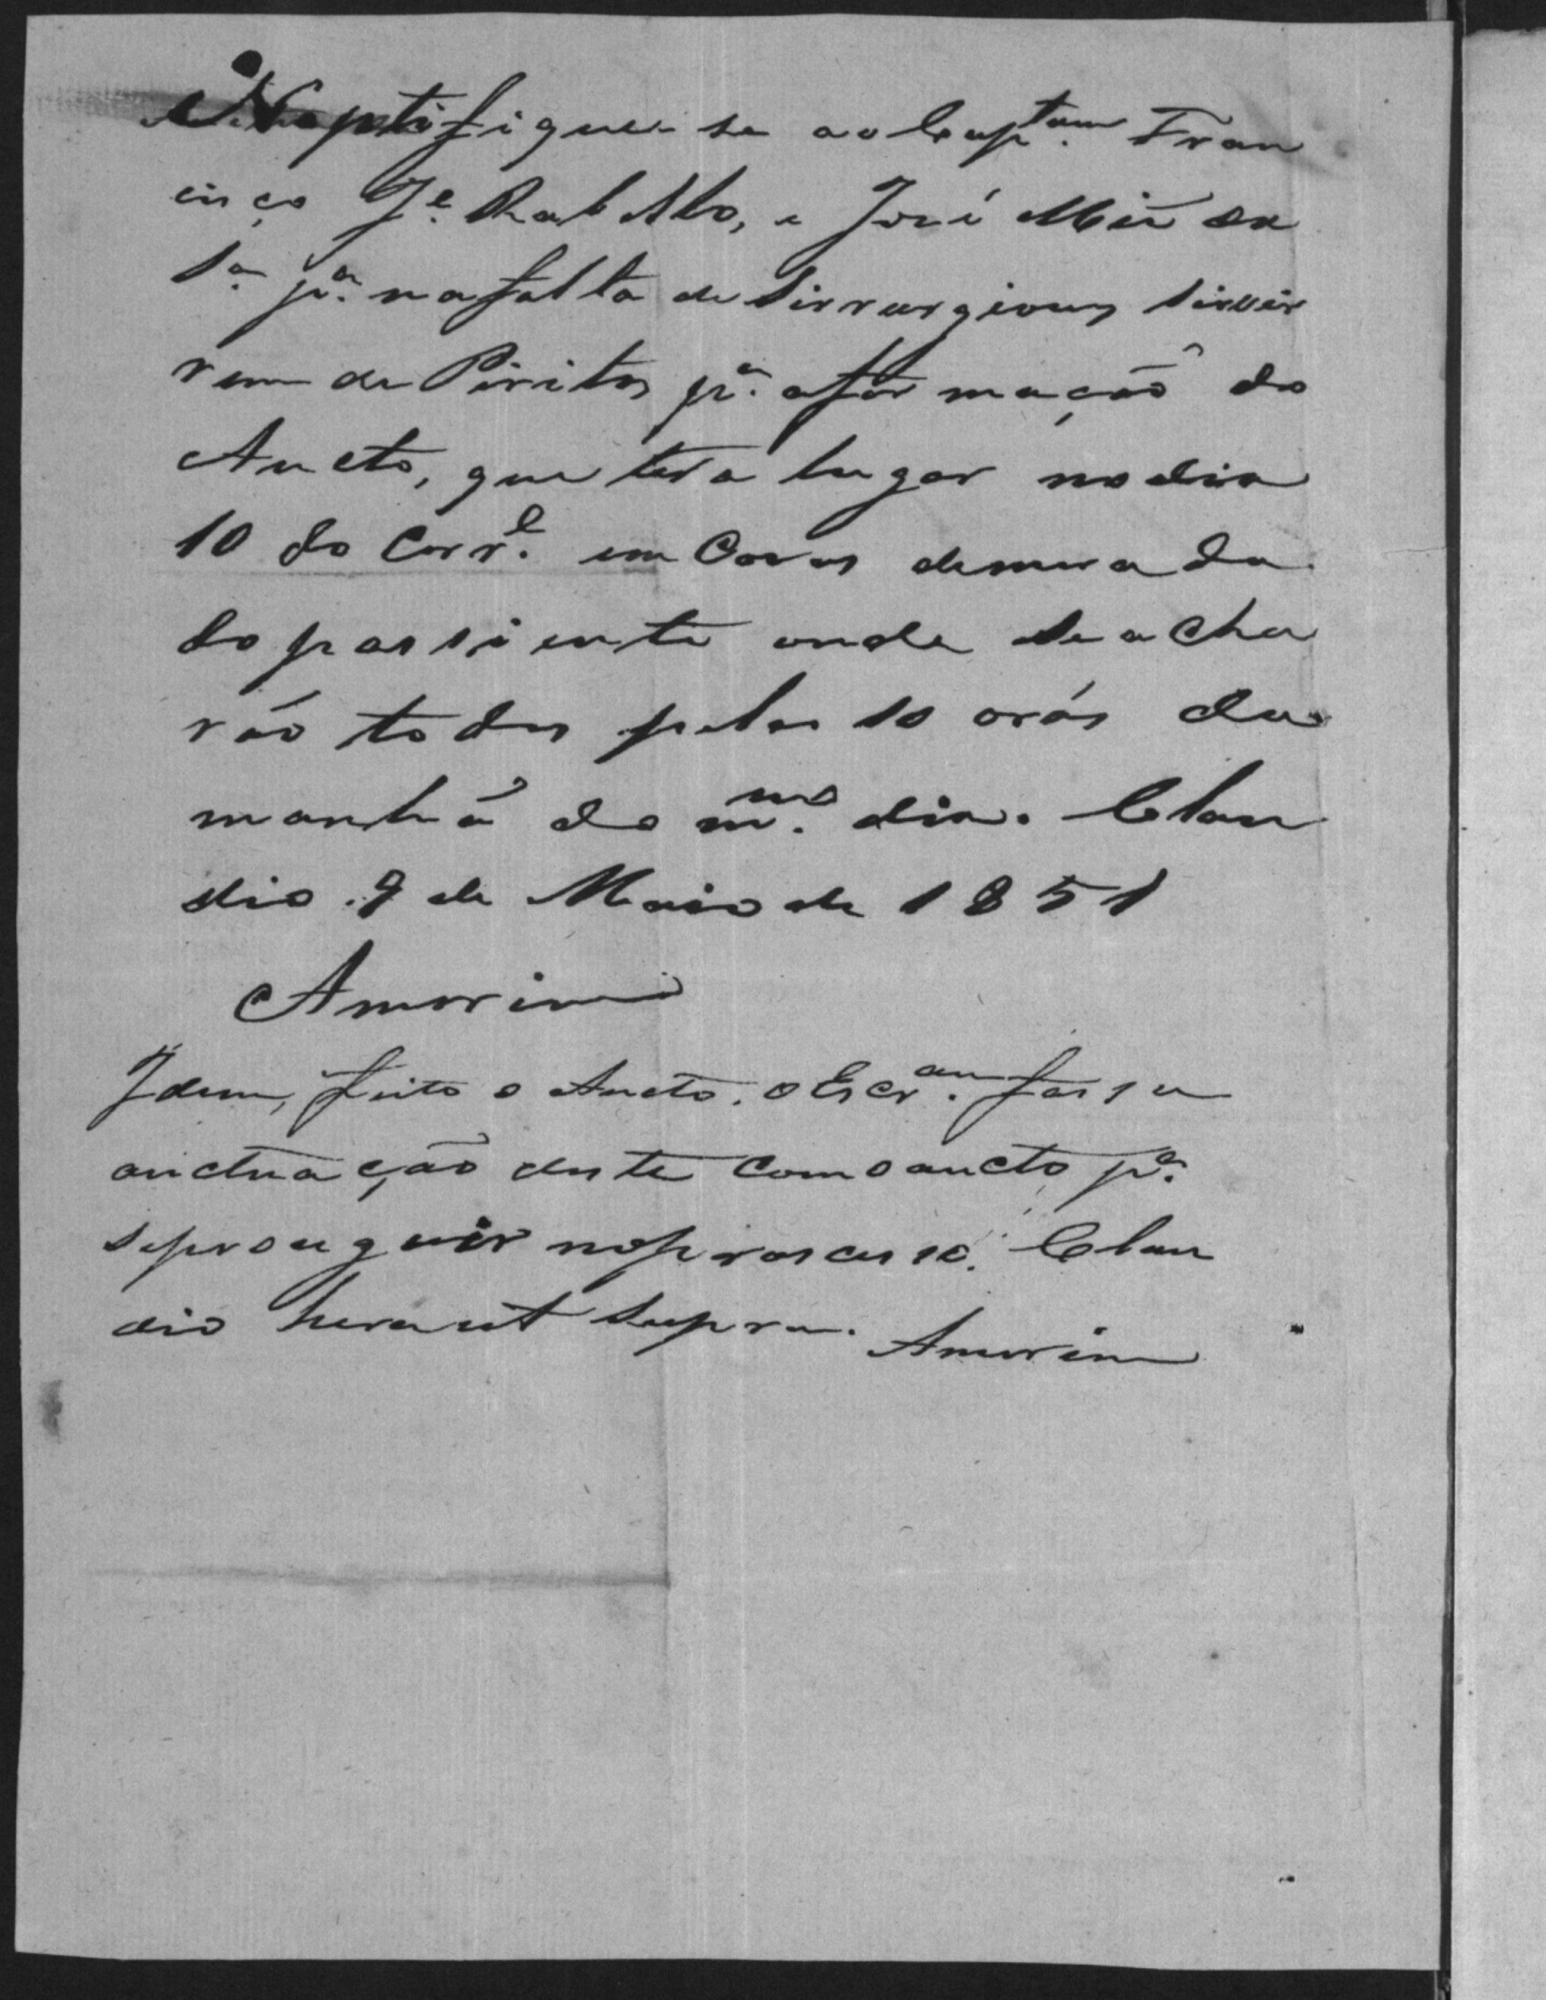 Noptifique-se ao Cap.tam Fran
cisço J.e Rabello, e José Mis da
S.a p.a na falta de Sirrurgions sirvir
rem de Piritos p.a a formação do
Aucto, que terá lugar no dia
10 do Corr.e em Cazas de morada
do passiente onde se acha
rão todos pelas 10 orás da
manhã do m.mo dia. Clau
dio 9 de Maio de 1851
Amorim
Idem, feito o Aucto. o Escr.am fassa
auctuação deste com o aucto p.a
se prouguir no proscesso. Clau
dio hera ut supra. Amorim